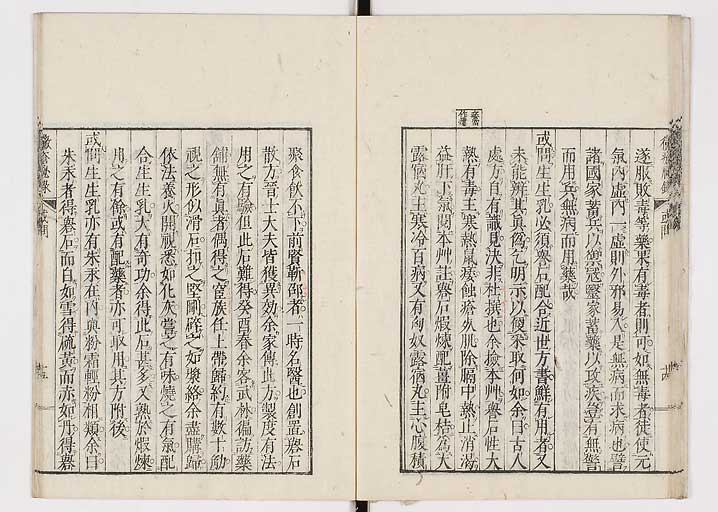 遂服敗毒等藥果有毒者則可如無毒者徒使元
氣內虛內一虛則外邪易入是無病而求病也譬
諸國家蓄兵以禦寇醫家蓄藥以攻疾豈有無警
而用兵無病而用藥哉
或問生生乳必須礜石配合近世方書鮮有用者又
未能辨其眞僞乞明示以便采取何如余曰古人
處方自有識見決非杜撰也余撿本艸礜石性大
熱有毒主寒熱鼠瘻蝕瘡死肌除膈中熱止消渴
益肝下氣閱本艸註礜石煅煉配薑附皂桔爲大
露宿丸主寒冷百病又有匈奴露宿丸主心腹積
聚食飮不下前賢靳邵者一時名醫也創置礜石
散方晉士大夫皆獲異効余家傳此方製度有法
用之有驗但此石難得癸酉春余客武林徧訪藥
舖無有眞者偶得之宦族仕上帶歸約有數十觔
視之形似滑石扣之堅剛碎之如漿絡余盡購歸
依法養火開視悉如化灰嘗之有味燒之有氣配
合生生乳大有奇功余得此石甚多又熟於煅煉
用之有餘或有配藥者亦可取用其方附後
或問生生乳亦有朱汞在內與粉霜輕粉相類余曰
朱汞者得礜石而白如雪得硫黃而赤如丹得礜
微瘡秘錄
或問
十五
十四